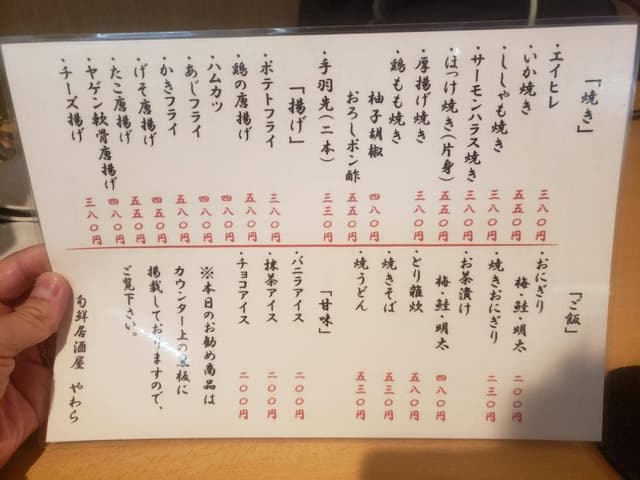 「焼き」
・エイヒレ 三八〇円
・いか焼き 五五〇円
・ししゃも焼き 三八〇円
・サーモンハラス焼き 三八〇円
・ほっけ焼き(片身) 五五〇円
・厚揚げ焼き 三八〇円
・鶏もも焼き
柚子胡椒 四八〇円
おろしポン酢 五五〇円
・手羽先(二本) 三三〇円
「揚げ」
・ポテトフライ 三八〇円
・鶏の唐揚げ 五五〇円
・ハムカツ 四八〇円
・あじフライ 四八〇円
・かきフライ 五八〇円
・げそ唐揚げ 四八〇円
・たこ唐揚げ 五五〇円
・ヤゲン軟骨唐揚げ 四八〇円
・チーズ揚げ 三八〇円
「ご飯」
・おにぎり
梅・鮭・明太 二〇〇円
・焼きおにぎり 二三〇円
・お茶漬け
梅・鮭・明太 四八〇円
・とり雑炊 五八〇円
・焼きそば 五三〇円
・焼うどん 五三〇円
「甘味」
・バニラアイス 二〇〇円
・抹茶アイス 二〇〇円
・チョコアイス 二〇〇円
※本日のお勧め商品は
カウンター上の黒板に
掲載しておりますので、
ご覧下さい。
旬鮮居酒屋 やわら